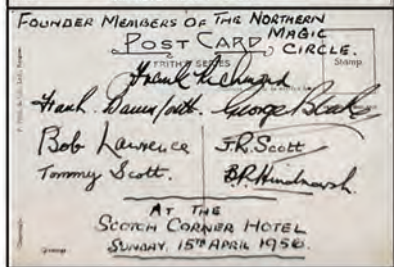 FOUNDER MEMBERS OF THE NORTHERN
MAGIC
CIRCLE.
POST CARD
FRITH'S SERIES
Stamp
Frank
Frank George
Bob Lawrence J.R. Scott
Tommy Scott. B.P.
AT THE
SCOTCH CORNER HOTEL
SUNDAY. 15TH APRIL 1956.